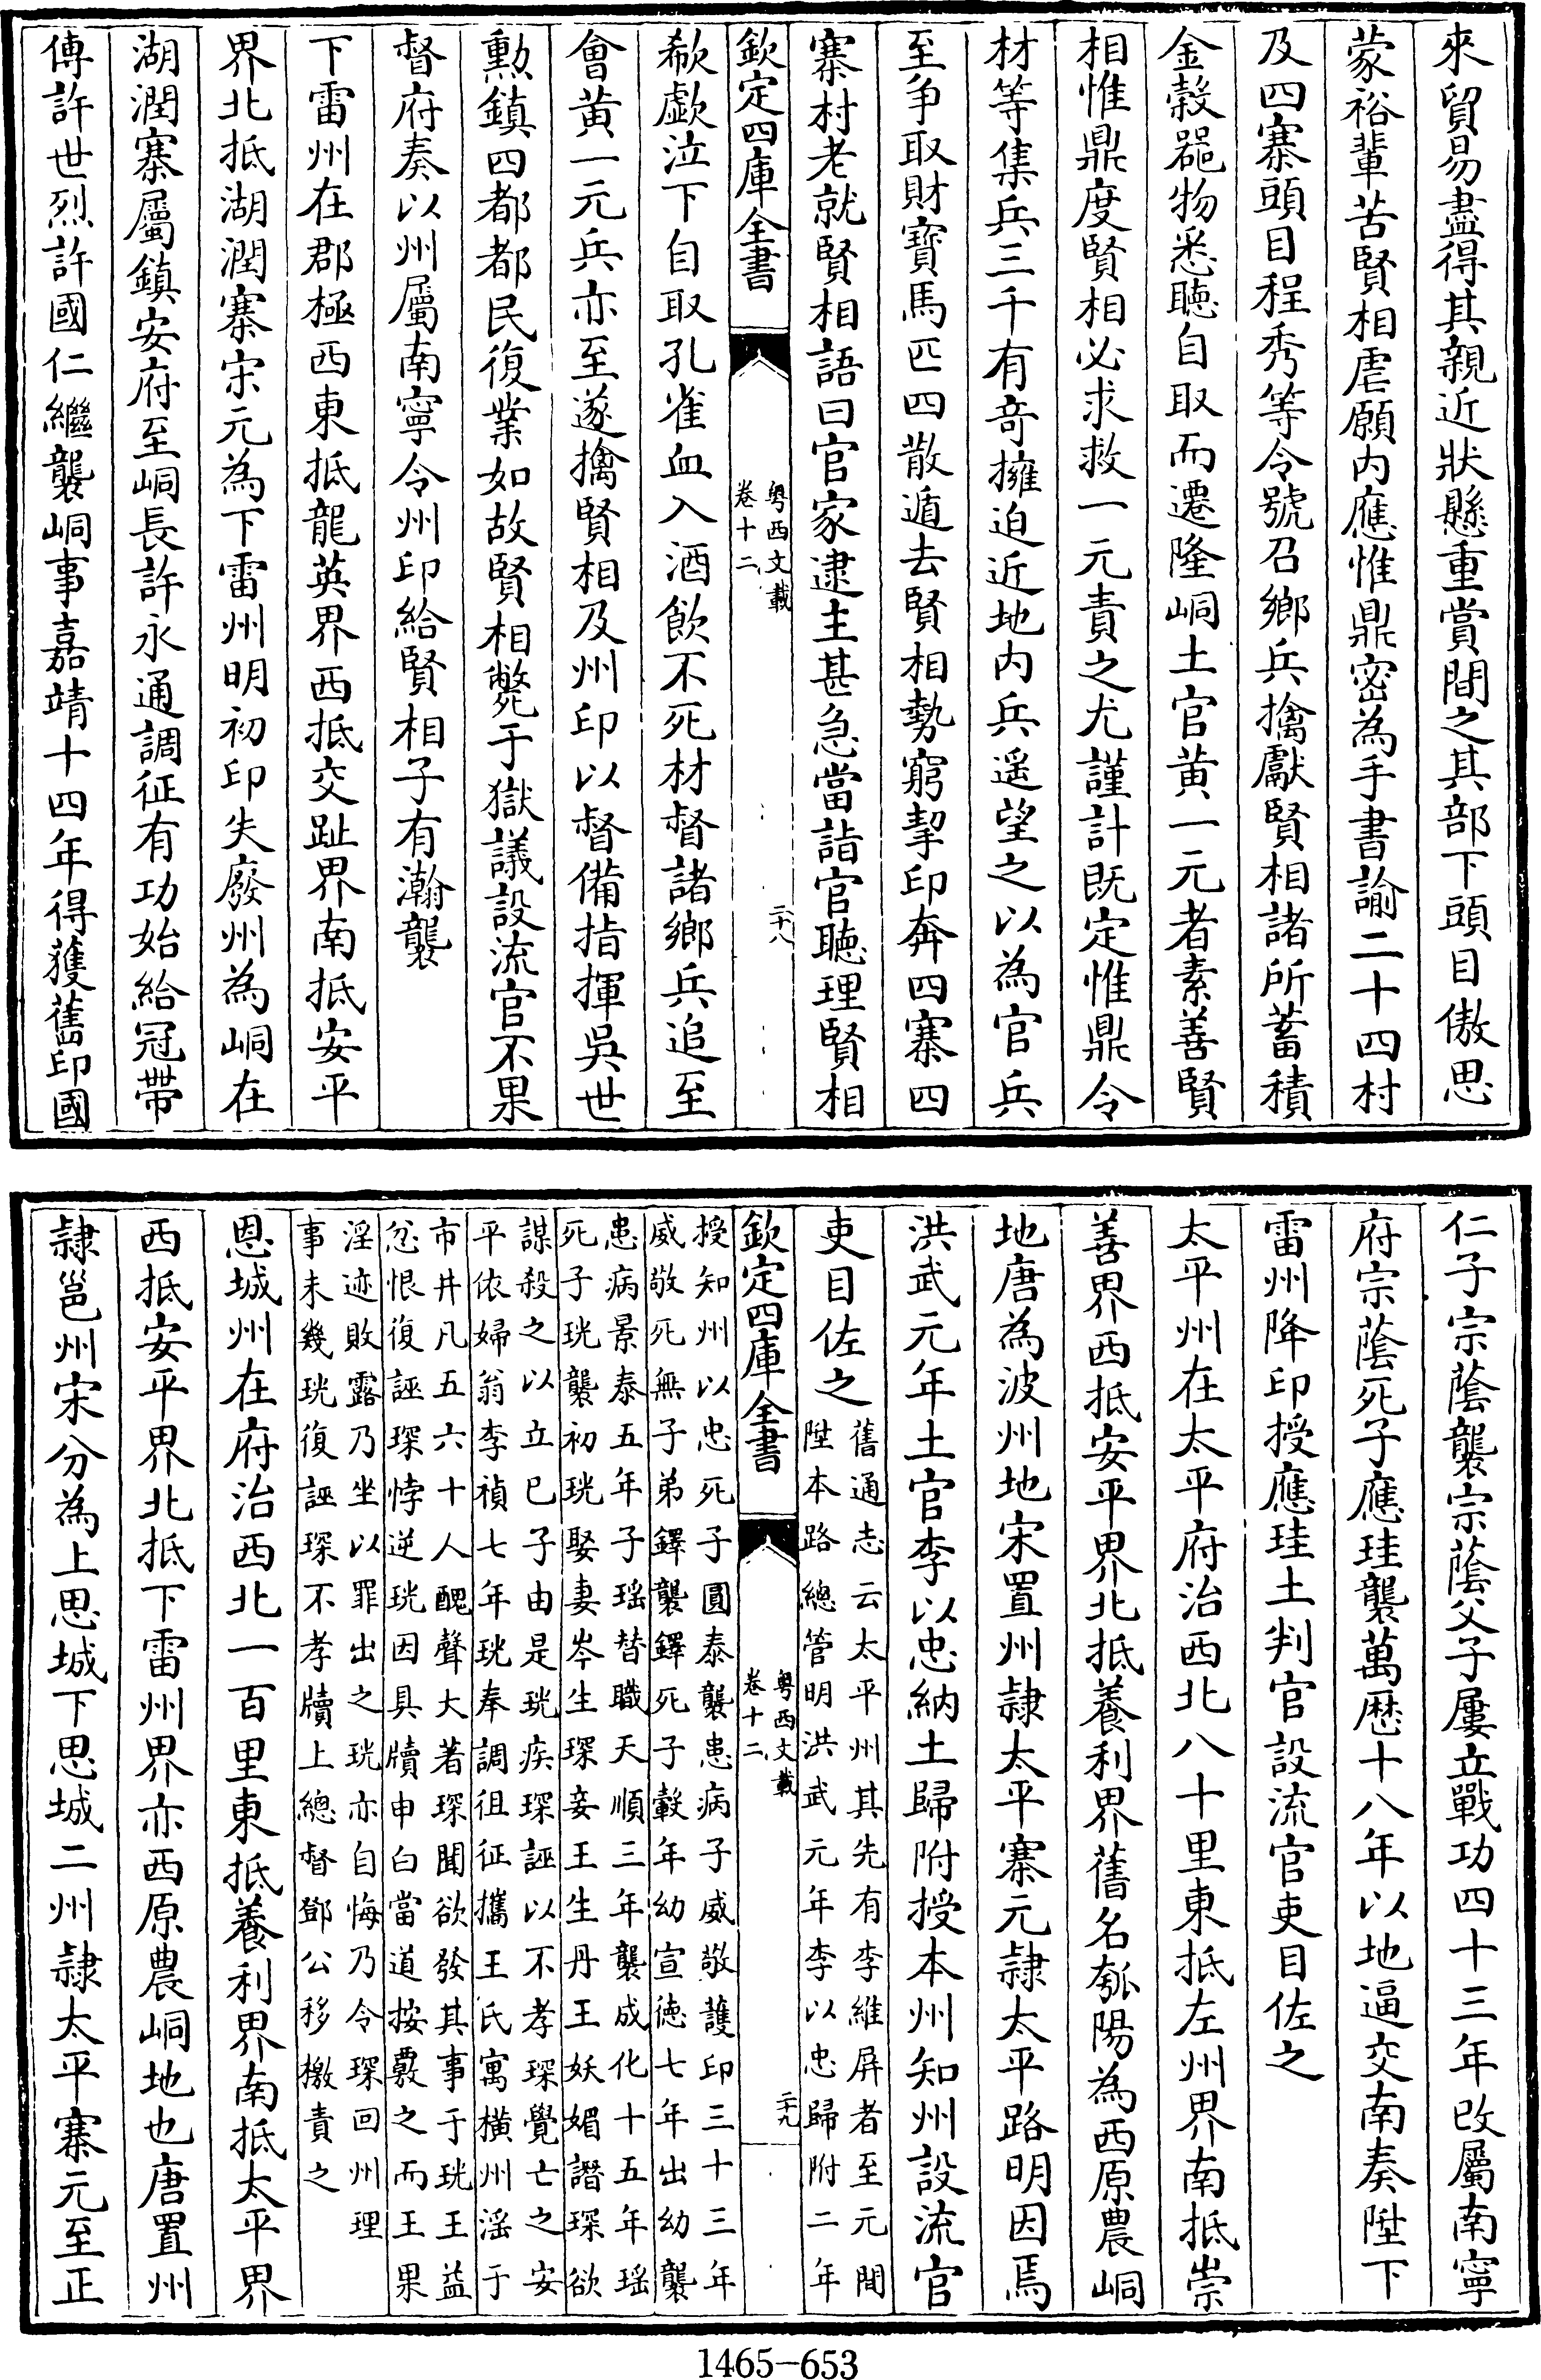 來貿易盡得其親近狀懸重賞間之其部下頭目傲思
蒙裕輩苦賢相虐願内應惟鼎密為手書諭二十四村
及四寨頭目程秀等令號召鄉兵擒獻賢相諸所蓄積
金穀噐物悉聽自取而遷隆峒土官黄一元者素善賢
相惟鼎度賢相必求救一元責之尤謹計既定惟鼎令
材等集兵三千有奇擁迫近地内兵遥望之以為官兵
至争取財寳馬匹四散遁去賢相勢窮挈印奔四寨四
寨村老就賢相語曰官家逮主甚急當詣官聽理賢相
欽定四庫全書
粤西文載
卷十二
二十八
欷歔泣下自取孔雀血入酒飲不死材督諸鄉兵追至
會黄一元兵亦至遂擒賢相及州印以督備指揮吳世
勲鎮四都都民復業如故賢相斃于獄議設流官不果
督府奏以州屬南寧令州印給賢相子有瀚襲
下雷州在郡極西東抵龍英界西抵交趾界南抵安平
界北抵湖潤寨宋元為下雷州明初印失廢州為峒在
湖潤寨屬鎮安府至峒長許永通調征有功始給冠帶
傳許世烈許國仁繼襲峒事嘉靖十四年得獲舊印國
仁子宗蔭襲宗蔭父子屢立戰功四十三年改屬南寧
府宗蔭死子應珪襲萬歴十八年以地逼交南奏陞下
雷州降印授應珪土判官設流官吏目佐之
太平州在太平府治西北八十里東抵左州界南抵崇
善界西抵安平界北抵養利界舊名瓠陽為西原農峒
地唐為波州地宋置州隷太平寨元隷太平路明因焉
洪武元年土官李以忠納土歸附授本州知州設流官
吏目佐之舊通志云太平州其先有李維屏者至元間
陞本路總管明洪武元年李以忠歸附二年
欽定四庫全書
粤西文載
卷十二
二十九
授知州以忠死子圓泰襲患病子威敬護印三十三年
威敬死無子弟鐸襲鐸死子轂年幼宣徳七年出幼襲
患病景泰五年子瑶替職天順三年襲成化十五年瑶
死子珖襲初珖娶妻岑生琛妾王生丹王妖媚譖琛欲
謀殺之以立巳子由是珖疾琛誣以不孝琛覺亡之安
平依婦翁李禎七年珖奉調徂征攜王氏寓橫州滛于
市井凡五六十人醜聲大著琛聞欲發其事于珖王益
忿恨復誣琛悖逆珖因具牘申白當道按覈之而王果
淫迹敗露乃坐以罪出之珖亦自悔乃令琛回州理
事未幾珖復誣琛不孝牘上總督鄧公移檄責之
恩城州在府治西北一百里東抵養利界南抵太平界
西抵安平界北抵下雷州界亦西原農峒地也唐置州
隷邕州宋分為上思城下思城二州隷太平寨元至正
1465-653